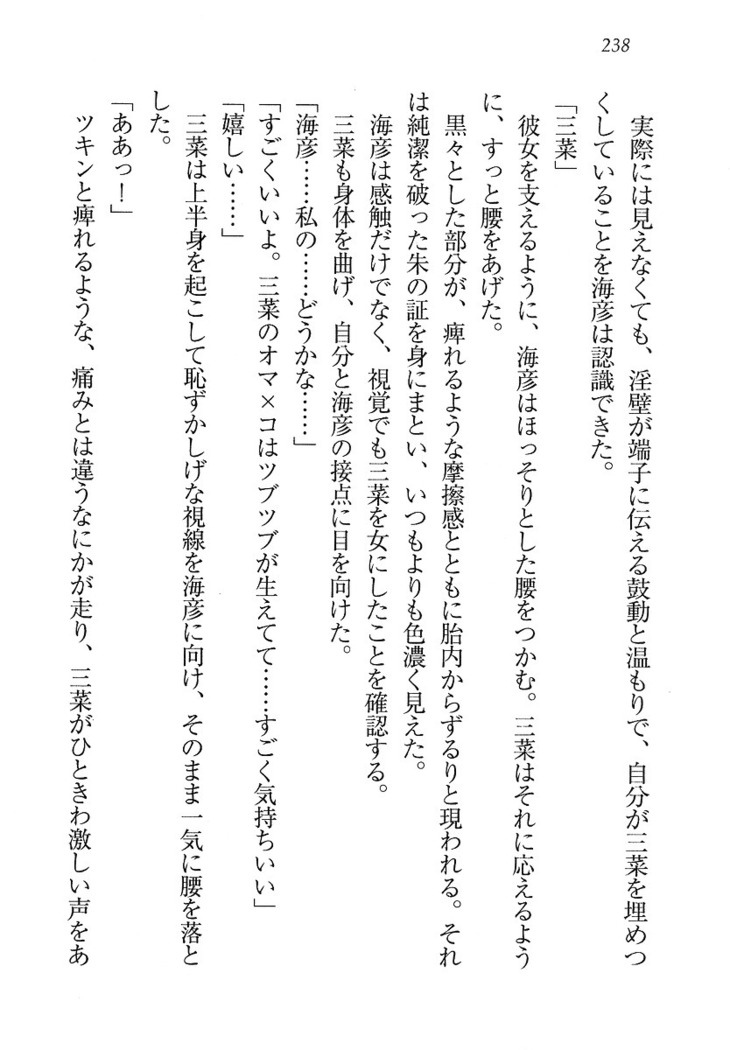 238
実際には見えなくても、淫壁が端子に伝える鼓動と温もりで、自分が三菜を埋めつ
くしていることを海彦は認識できた。
「三菜」
彼女を支えるように、海彦はほっそりとした腰をつかむ。三菜はそれに応えるよう
に、すっと腰をあげた。
黒々とした部分が、痺れるような摩擦感とともに胎内からずるりと現われる。それ
は純潔を破った朱の証を身にまとい、いつもよりも色濃く見えた。
海彦は感触だけでなく、視覚でも三菜を女にしたことを確認する。
三菜も身体を曲げ、自分と海彦の接点に目を向けた。
「海彦……私の……どうかな……」
「すごくいいよ。三菜のオマ×コはツブツブが生えてて……すごく気持ちいい」
「嬉しい……」
三菜は上半身を起こして恥ずかしげな視線を海彦に向け、そのまま一気に腰を落と
した。
「ああっ！」
ツキンと痺れるような、痛みとは違うなにかが走り、三菜がひときわ激しい声をあ